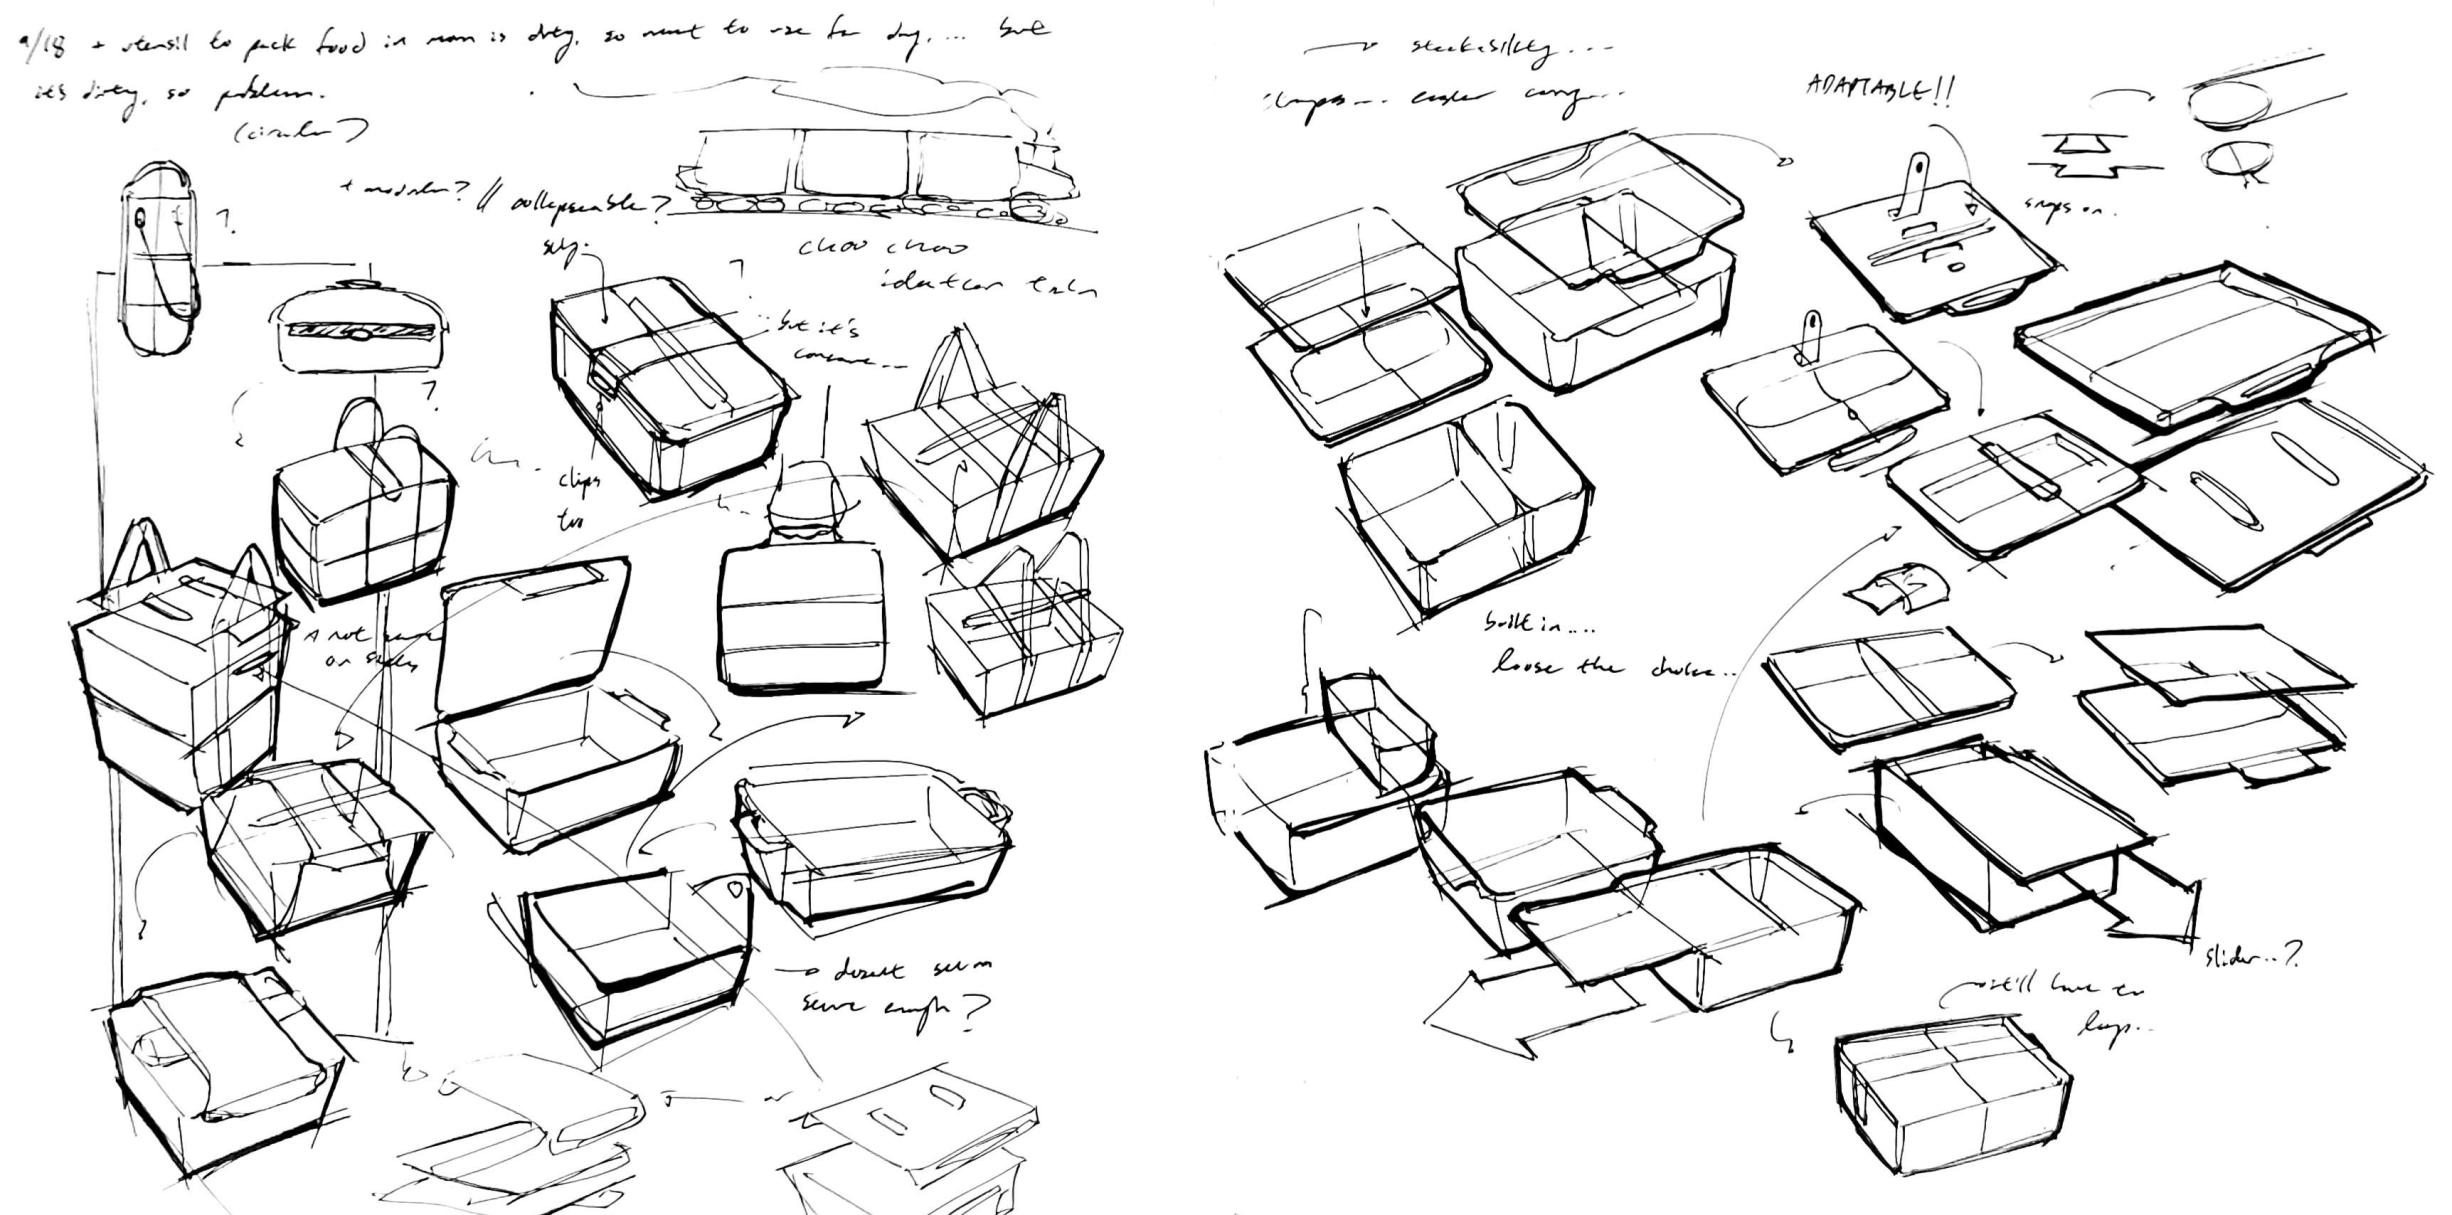 9/18 + utensil to pack food in mom is dirty, so want to use for day, ... but
it's dirty, so problem.
(circular?)
+ modular? // collapseable?
choo choo
ideation train
?
?
?
...but it's
concave...
clips
too
^ not same
on sides
→ doesn't seem
secure enough?
→ stackability...
clasps... easier carry...
ADAPTABLE!!
snaps on.
built in....
loose the choice..
slider..?
still have to